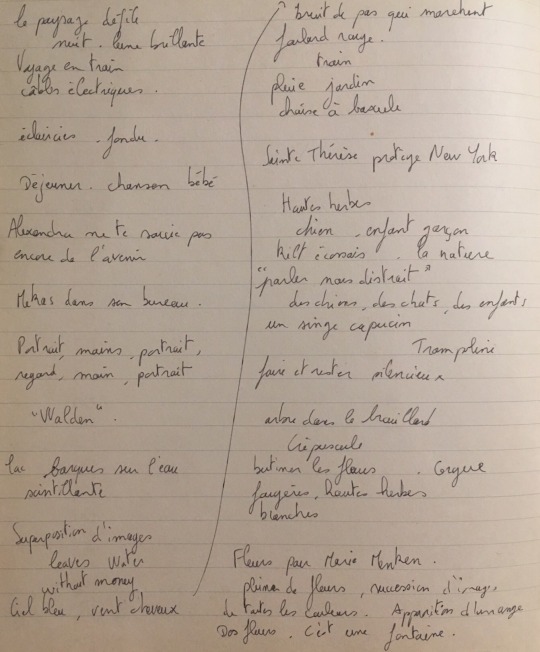 le paysage défile
nuit. lune brillante
Voyage en train
câbles électriques.
éclaircies. fondu.
Déjeuner. chanson bébé
Alexandra ne te soucie pas
encore de l'avenir
Mekas dans son bureau.
Portrait, mains, portrait,
regard, main, portrait
"Walden".
lac barques sur l'eau
scintillante
Superposition d'images
leaves Water
without money
Ciel bleu, vent cheveux
bruit de pas qui marchent
foulard rouge.
train
pluie jardin
chaise à bascule
Sainte Thérèse protège New York
Hautes herbes
chien, enfant garçon
kilt écossais. la nature
"parler nous distrait"
des chiens, des chats, des enfants
un singe capucin
Trampline
faire et rester silencieux
arbre dans le brouillard
Crépuscule
butiner les fleurs. Orgue
fougères, hautes herbes
branches
Fleurs par Marie Menken.
pleines de fleurs, succession d'images
de toutes les couleurs. Apparition d'un ange
Dos fleurs. C'est une fontaine.